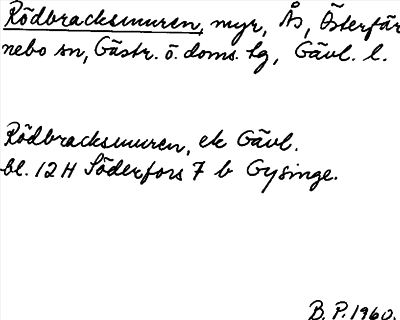 Rödbracksmuren, myr, Ås, Österfär
nebo sn, Gästr. ö. doms. hg, Gävl. l.
Rödbracksmuren, ek Gävl.
bl. 12 H Söderfors 7 b Gysinge.
B. P. 1960.